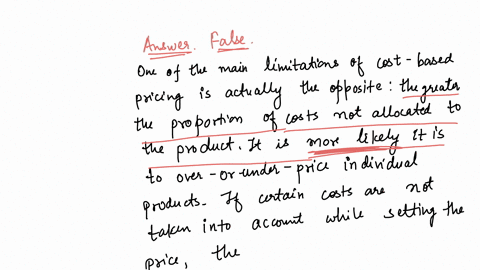 Answer. False.
One of the main limitations of cost-based
pricing is actually the opposite: the greater
the proportion of costs not allocated to
the product. It is more likely it is
to over-or-under-price individual
products. If certain costs are not
taken into account while setting the
price, the